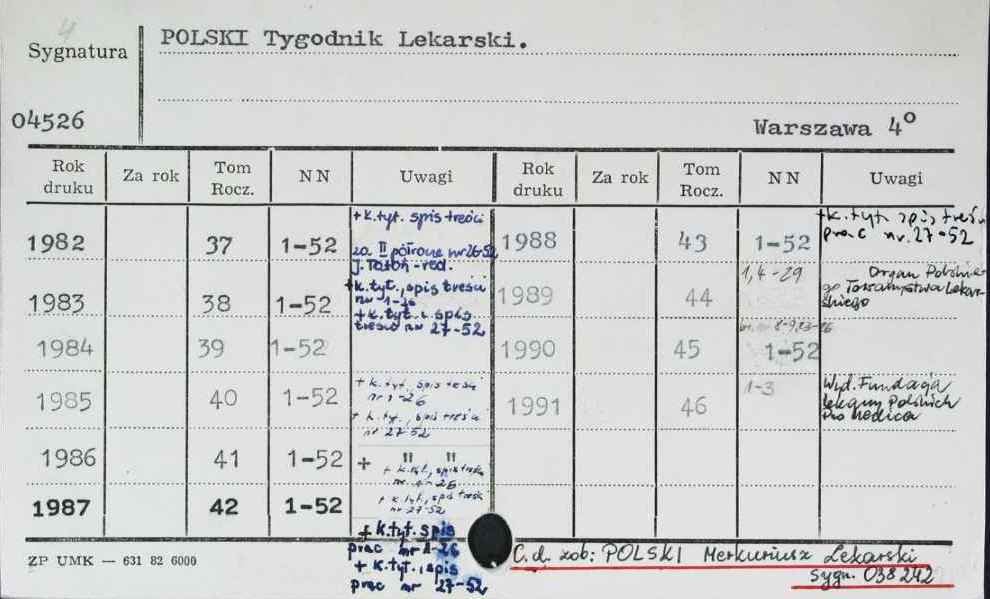 4
Sygnatura
POLSKI Tygodnik Lekarski.
04526
Warszawa 4°
Rok druku Za rok Tom Rocz. NN Uwagi Rok druku Za rok Tom Rocz. NN Uwagi
1982 37 1-52 + k.tyt. spis treści
za II półrocze nr 26-52
J. Tatoń - red.
1983 38 1-52 + k.tyt., spis treści
nr 1-26
+ k.tyt. i spis
treści nr 27-52
1984 39 1-52
1985 40 1-52 + k.tyt., spis treści
nr 1-26
+ k.tyt., spis treści
nr 27-52
1986 41 1-52 + " "
+ k.tyt., spis treści
nr 1-26
1987 42 1-52 + k.tyt., spis treści
nr 27-52
+ k.tyt. spis
prac nr 1-26
+ k.tyt., spis
prac nr 27-52
1988 43 1-52 + k.tyt. spis treści
prac nr. 27-52
1989 44 1,4-29 Organ Polskie-
go Towarzystwa Lekar-
skiego
1990 45 8-9,23-26
1-52
1991 46 1-3 Wyd. Fundacja
lekarzy Polskich
Pro Medica
ZP UMK — 631 82 6000
C.d. zob: POLSKI Merkuriusz Lekarski
sygn. 038242